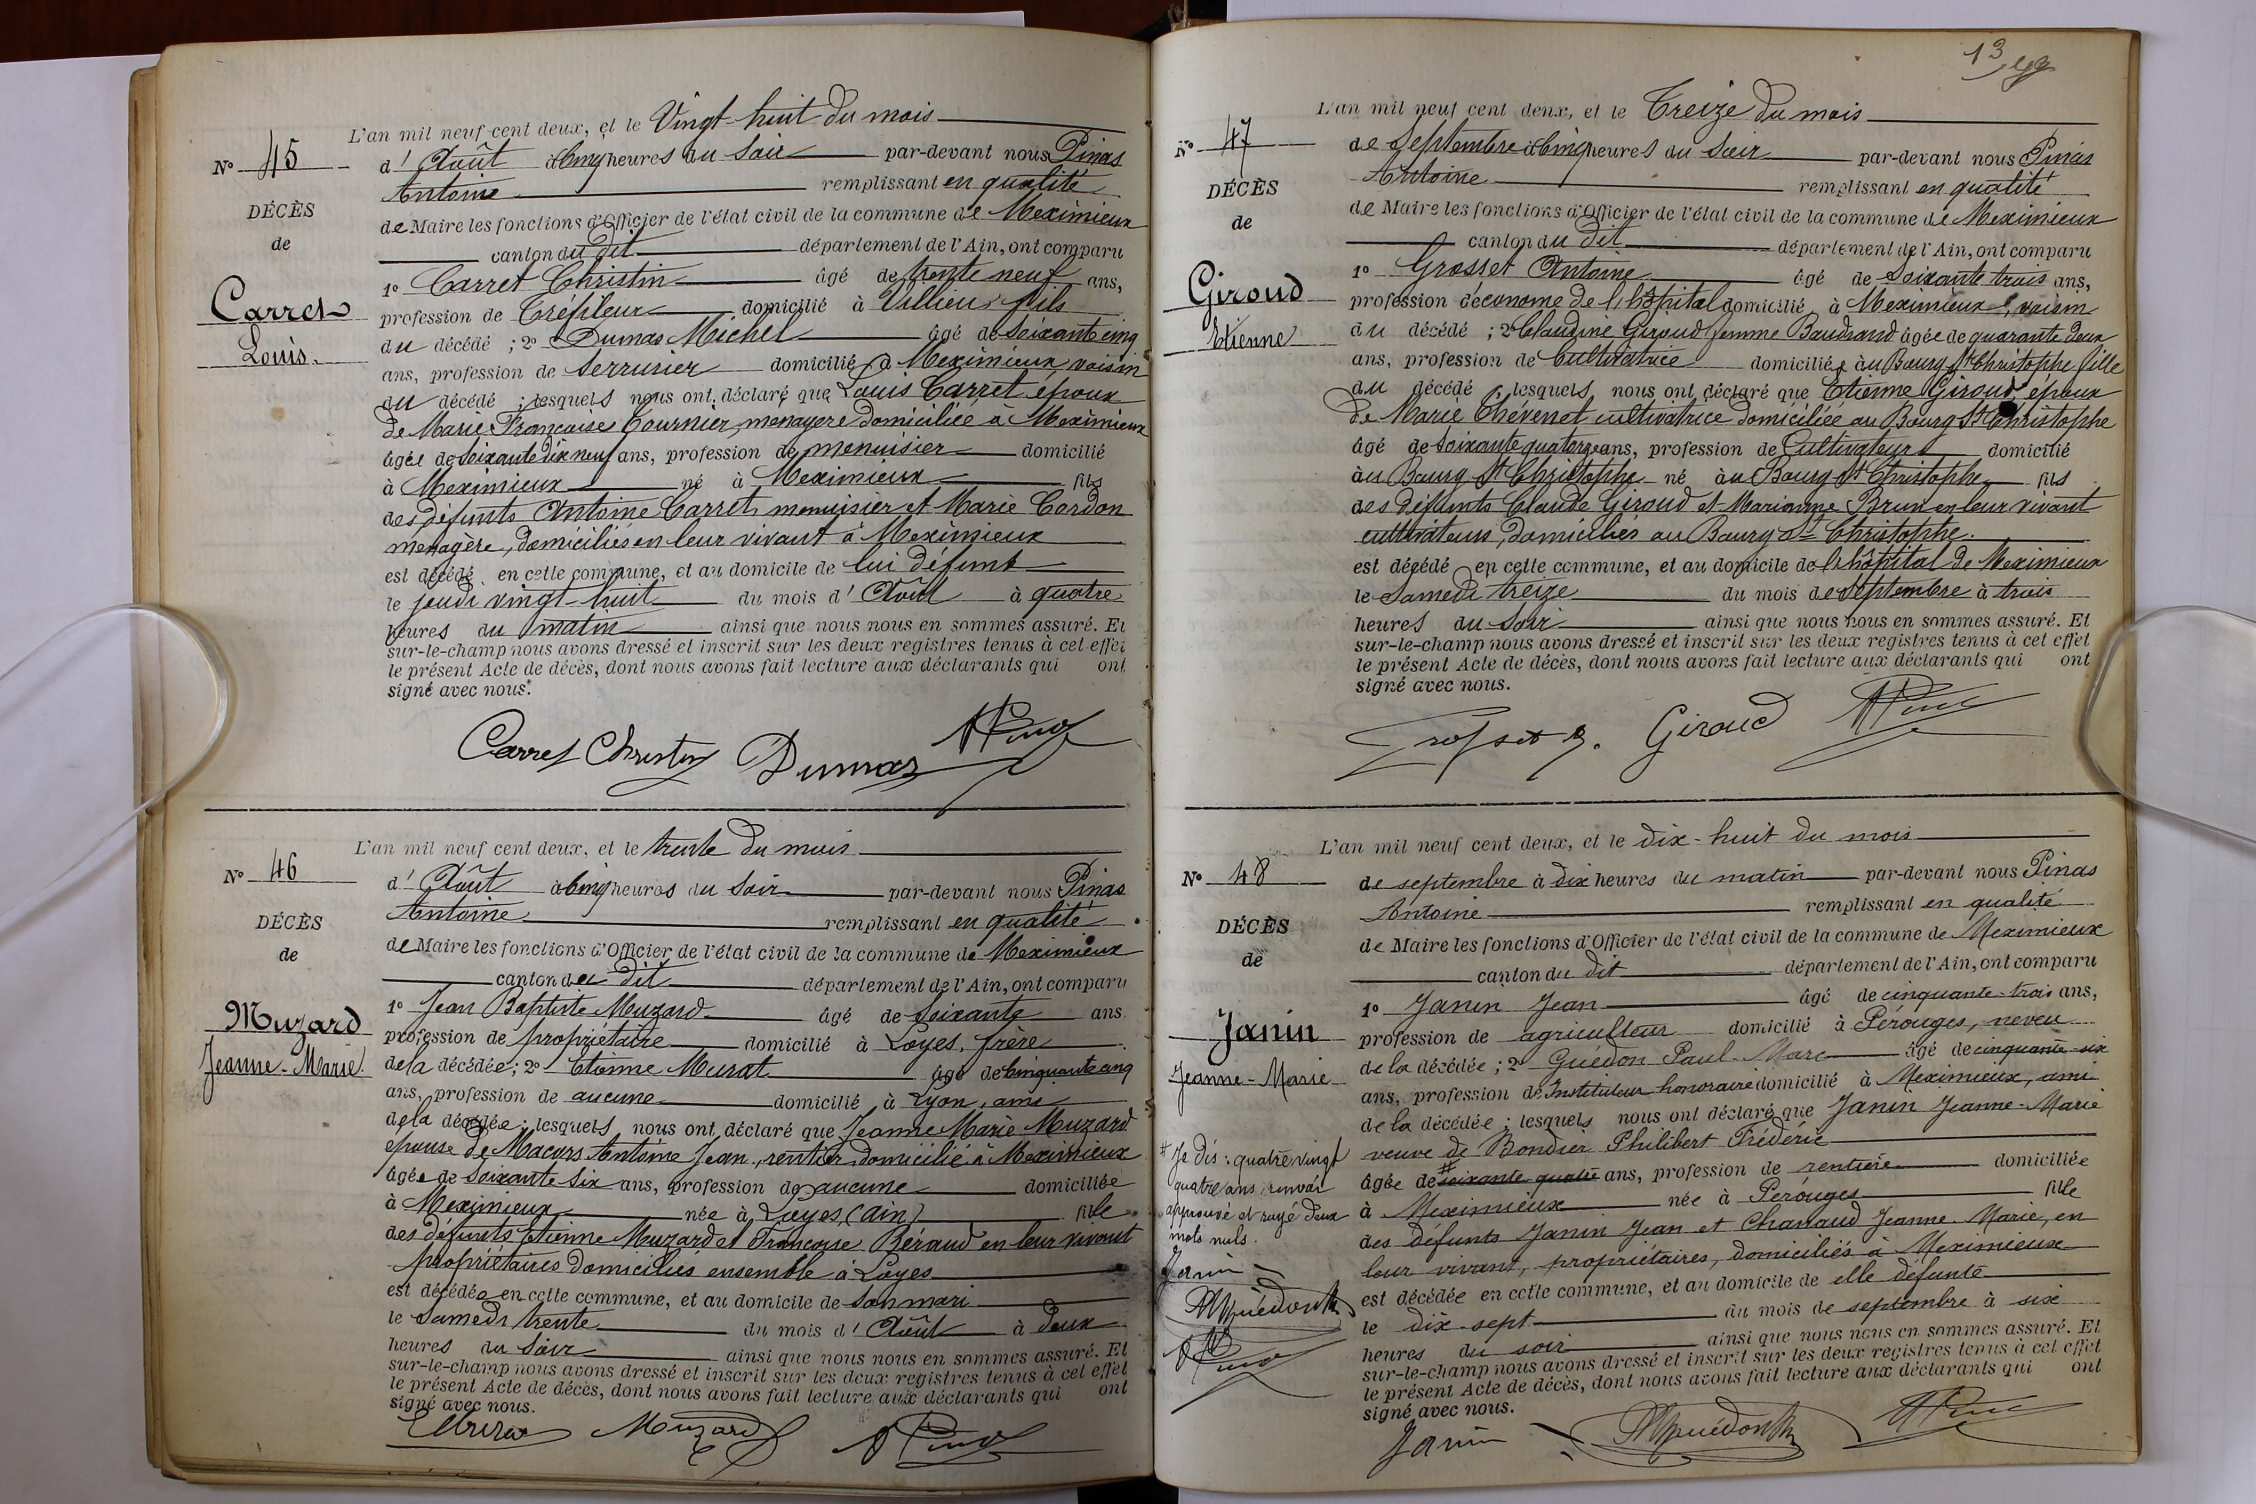 L'an mil neuf cent deux, et le Vingt-huit du mois
N° 45
d'Août à Cinq heures du Soir par-devant nous Pinas
Antoine remplissant en qualité
DÉCÈS
de Maire les fonctions d'Officier de l'état civil de la commune de Meximieux
de
canton du dit département de l'Ain, ont comparu
1° Carret Christin âgé de trente neuf ans,
Carret
profession de Tréfileur domicilié à Villieu, fils
du décédé ; 2° Dumas Michel âgé de Soixante cinq
Louis.
ans, profession de Serrurier domicilié à Meximieux voisin
du décédé ; lesquels nous ont déclaré que Louis Carret époux
de Marie Françoise Tournier, ménagère domiciliée à Meximieux
âgé de Soixante dix neuf ans, profession de menuisier domicilié
à Meximieux né à Meximieux fils
des défunts Antoine Carret, menuisier et Marie Cordon
menagère, domiciliés en leur vivant à Meximieux
est décédé en cette commune, et au domicile de lui défunt
le jeudi vingt-huit du mois d'Août à quatre
heures du matin ainsi que nous nous en sommes assuré. Et
sur-le-champ nous avons dressé et inscrit sur les deux registres tenus à cet effet
le présent Acte de décès, dont nous avons fait lecture aux déclarants qui ont
signé avec nous.
Carret Christin Dumas APinas
L'an mil neuf cent deux, et le trente du mois
N° 46
d'Août à Cinq heures du Soir par-devant nous Pinas
Antoine remplissant en qualité
DÉCÈS
de Maire les fonctions d'Officier de l'état civil de la commune de Meximieux
de
canton du dit département de l'Ain, ont comparu
1° Jean Baptiste Muzard âgé de Soixante ans
Muzard
profession de propriétaire domicilié à Loyes, frère
Jeanne-Marie.
de la décédée ; 2° Etienne Murat âgé de Cinquante cinq
ans, profession de aucune domicilié à Lyon, ami
de la décédée ; lesquels nous ont déclaré que Jeanne Marie Muzard
épouse de Macors Antoine Jean, rentier domicilié à Meximieux
âgée de Soixante Six ans, profession de aucune domiciliée
à Meximieux née à Loyes, (Ain) fille
des défunts Etienne Muzard et Françoise Béraud en leur vivant
propriétaires domiciliés ensemble à Loyes
est décédée en cette commune, et au domicile de son mari
le Samedi trente du mois d'Août à deux
heures du Soir ainsi que nous nous en sommes assuré. Et
sur-le-champ nous avons dressé et inscrit sur les deux registres tenus à cet effet
le présent Acte de décès, dont nous avons fait lecture aux déclarants qui ont
signé avec nous.
Muzard APinas
13
L'an mil neuf cent deux, et le Treize du mois
N° 47
de Septembre à Cinq heures du Soir par-devant nous Pinas
Antoine remplissant en qualité
DÉCÈS
de Maire les fonctions d'Officier de l'état civil de la commune de Meximieux
de
canton du dit département de l'Ain, ont comparu
1° Grosset Antoine âgé de Soixante trois ans,
Giroud
profession d'économe de l'hôpital domicilié à Meximieux, voisin
Etienne
du décédé ; 2° Claudine Giroud femme Baudrand âgée de quarante deux
ans, profession de Cultivatrice domiciliée au Bourg St Christophe fille
du décédé lesquels nous ont déclaré que Etienne Giroud époux
de Marie Thévenet cultivatrice domiciliée au Bourg St Christophe
âgé de Soixante quatorze ans, profession de Cultivateur domicilié
au Bourg St Christophe né au Bourg St Christophe fils
des défunts Claude Giroud et Marianne Brun en leur vivant
cultivateurs, domiciliés au Bourg St Christophe.
est décédé en cette commune, et au domicile de l'hôpital de Meximieux
le Samedi treize du mois de Septembre à trois
heures du Soir ainsi que nous nous en sommes assuré. Et
sur-le-champ nous avons dressé et inscrit sur les deux registres tenus à cet effet
le présent Acte de décès, dont nous avons fait lecture aux déclarants qui ont
signé avec nous.
Grosset A. Giroud APinas
L'an mil neuf cent deux, et le dix-huit du mois
N° 48
de septembre à dix heures du matin par-devant nous Pinas
Antoine remplissant en qualité
DÉCÈS
de Maire les fonctions d'Officier de l'état civil de la commune de Meximieux
de
canton du dit département de l'Ain, ont comparu
1° Janin Jean âgé de cinquante-trois ans,
Janin
profession de agriculteur domicilié à Pérouges, neveu
Jeanne-Marie
de la décédée ; 2° Guédon Paul-Marc âgé de cinquante-six
ans, profession de Instituteur honoraire domicilié à Meximieux, ami
de la décédée ; lesquels nous ont déclaré que Janin Jeanne-Marie
veuve de Bondier Philibert Frédéric
âgée de # soixante-quatre ans, profession de rentière domiciliée
à Meximieux née à Pérouges fille
des défunts Janin Jean et Chanaud Jeanne-Marie, en
leur vivant, propriétaires, domiciliés à Meximieux
est décédée en cette commune, et au domicile de elle défunte
le dix-sept du mois de septembre à six
heures du soir ainsi que nous nous en sommes assuré. Et
sur-le-champ nous avons dressé et inscrit sur les deux registres tenus à cet effet
le présent Acte de décès, dont nous avons fait lecture aux déclarants qui ont
signé avec nous.
# Je dis : quatre vingt
quatre ans, renvoi
approuvé et rayé deux
mots nuls.
Janin
PMGuédon
APinas
Janin PMGuédon APinas